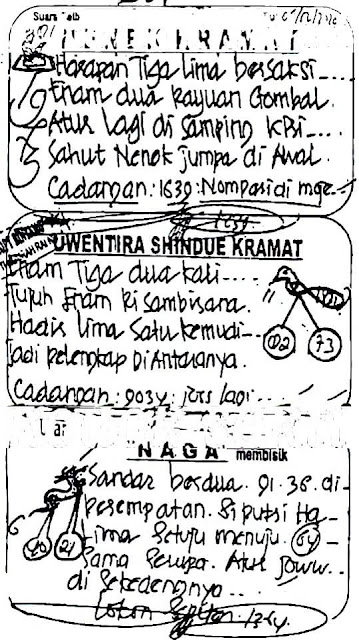 KRAMAT
Harapan Tiga lima bersaksi....
Enam dua Rayuan Gombal.
Atur lagi di samping KRi....
Sahut Nenek jumpa di Awal.
Cadangan: 1639: Nompasi di mqe...
1639.
UWENTIRA SHINDUE KRAMAT
Enam Tiga dua kali....
Tujuh Enam Ri sambisara.
Hadis lima Satu kemudi....
Jadi pelengkap DiAntaranya.
02 73
Cadangan: 9034: jots lagi...
"NAGA" membisik
Sandar berdua. 91. 36. di-
perempatan. Si putri Ha-
Lima Setuju menuju. 64
Sama Serupa. Atur
di Sekedengnya...
1364.